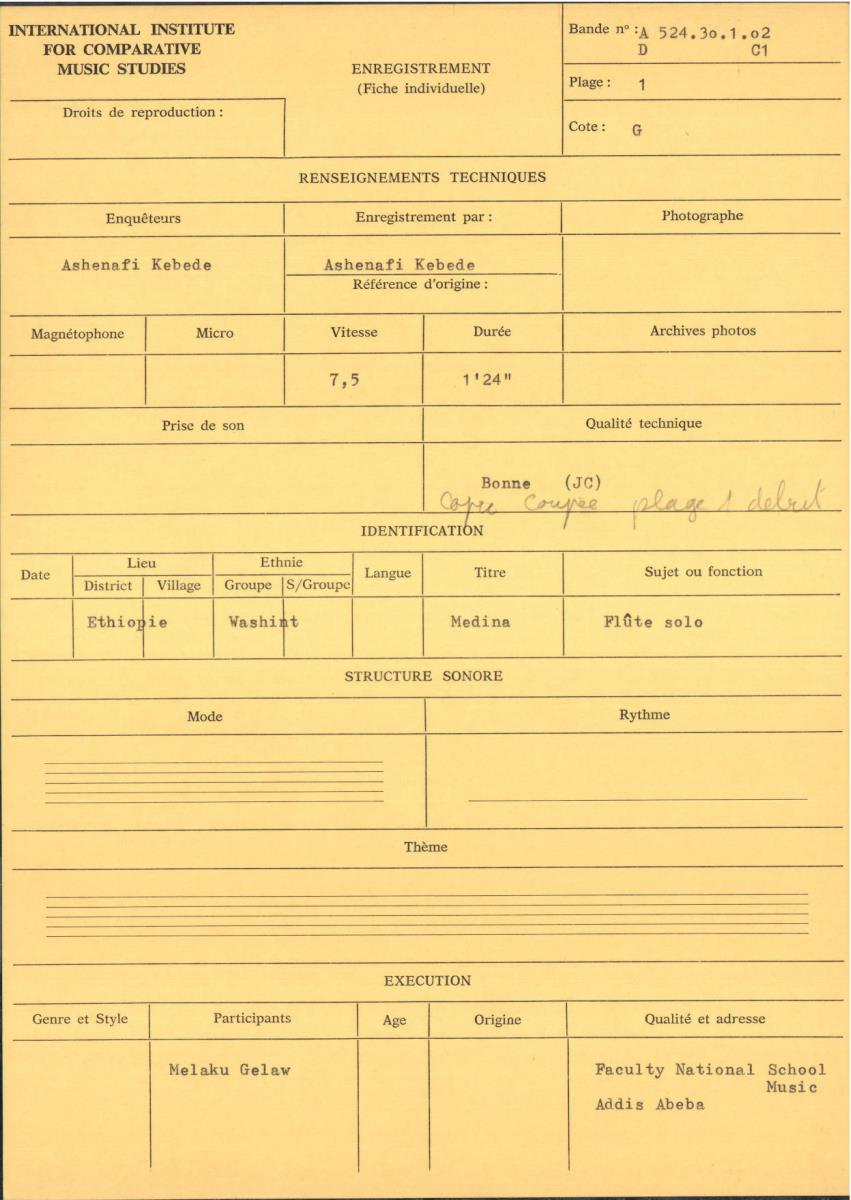 INTERNATIONAL INSTITUTE
FOR COMPARATIVE
MUSIC STUDIES
Droits de reproduction :
ENREGISTREMENT
(Fiche individuelle)
Bande nº : A 524.3o.1.o2
D C1
Plage : 1
Cote : G
RENSEIGNEMENTS TECHNIQUES
Enquêteurs
Enregistrement par :
Photographe
Ashenafi Kebede
Ashenafi Kebede
Référence d'origine :
Magnétophone
Micro
Vitesse
Durée
Archives photos
7,5
1'24"
Prise de son
Qualité technique
Bonne (JC)
copie coupée plage 1 debut
IDENTIFICATION
Date
Lieu
District
Village
Ethnie
Groupe
S/Groupe
Langue
Titre
Sujet ou fonction
Ethiopie
Washint
Medina
Flûte solo
STRUCTURE SONORE
Mode
Rythme
Thème
EXECUTION
Genre et Style
Participants
Age
Origine
Qualité et adresse
Melaku Gelaw
Faculty National School
Music
Addis Abeba